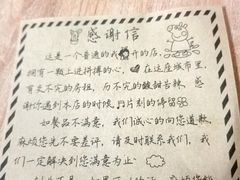 感谢信
这是一个普通的我开的店，
拥有一颗上进拼搏的心，在这座城市里，
有交不完的房租，而不完的酸甜苦辣，感
谢你遇到本店的时候，片刻的停留
如餐品不满意，我们诚心的向您道歉，
麻烦您先不要差评，请及时联系我们，我
们一定解决到您满意为止